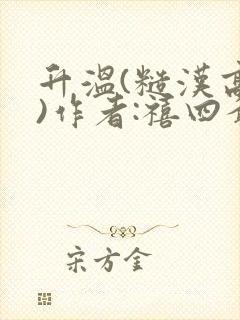 升温(糙汉高
)作者:禧四
宋方金